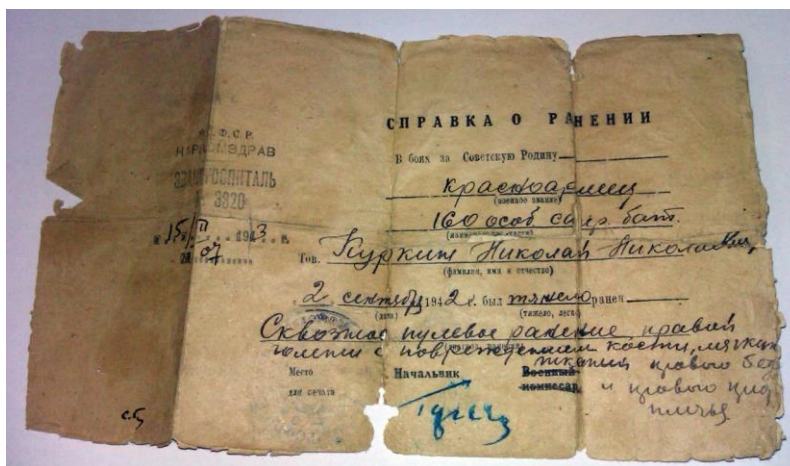 Р.С.Ф.С.Р.
НАРКОМЗДРАВ
ЭВАКОГОСПИТАЛЬ
3820
15/II 1943 г.
СПРАВКА О РАНЕНИИ
В боях за Советскую Родину
красноармеец
(воинское звание)
160 особ сапр. бат.
Тов. Куркин Николай Николаевич,
(фамилия, имя и отчество)
2 сентября 1942 г. был тяжело ранен
(дата) (тяжело, легко)
Сквозное пулевое ранение правой
голени с повреждением кости, мягких
тканей правого бед
и правого пред
плечья
Место Начальник Военный
для печати комиссар